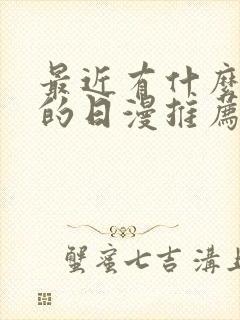 最近有什麼
的日漫推薦
蟹蜜七吉溝上